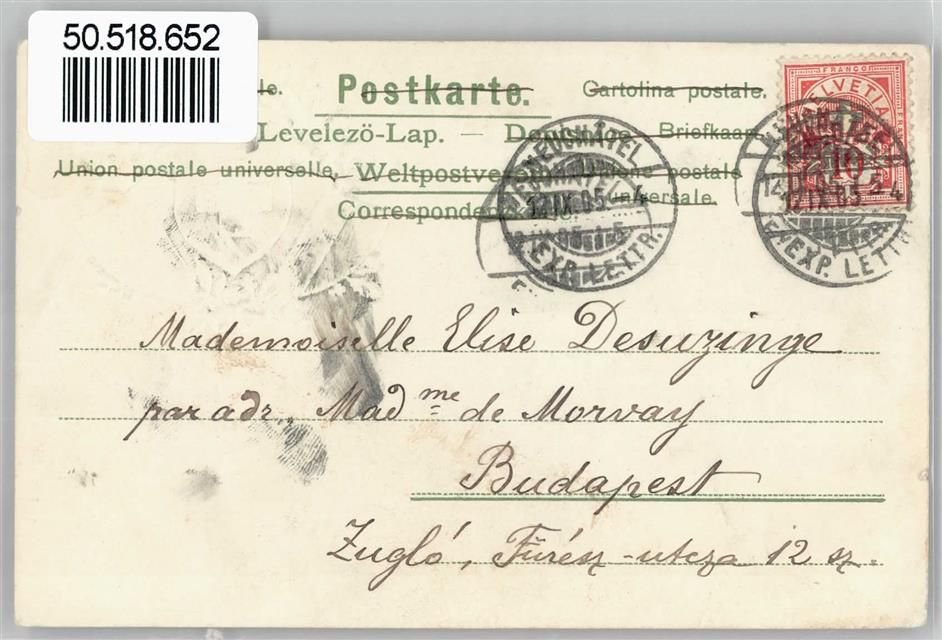 50.518.652
le. Postkarte. Cartolina postale.
Levelezö-Lap. — Dopisnice. Briefkaart
Union postale universelle. Weltpostverein. Unione postale
Correspondenz universale.
FRANCO
HELVETIA
10
NEUCHÂTEL
12.IX.05 4
EXP. LETTR.
NEUCHÂTEL
12.IX.05 4
EXP. LETTR.
Mademoiselle Elise Desuzinge
par adr. Madme de Morvay
Budapest
Zugló, Fürész-utcza 12 sz.